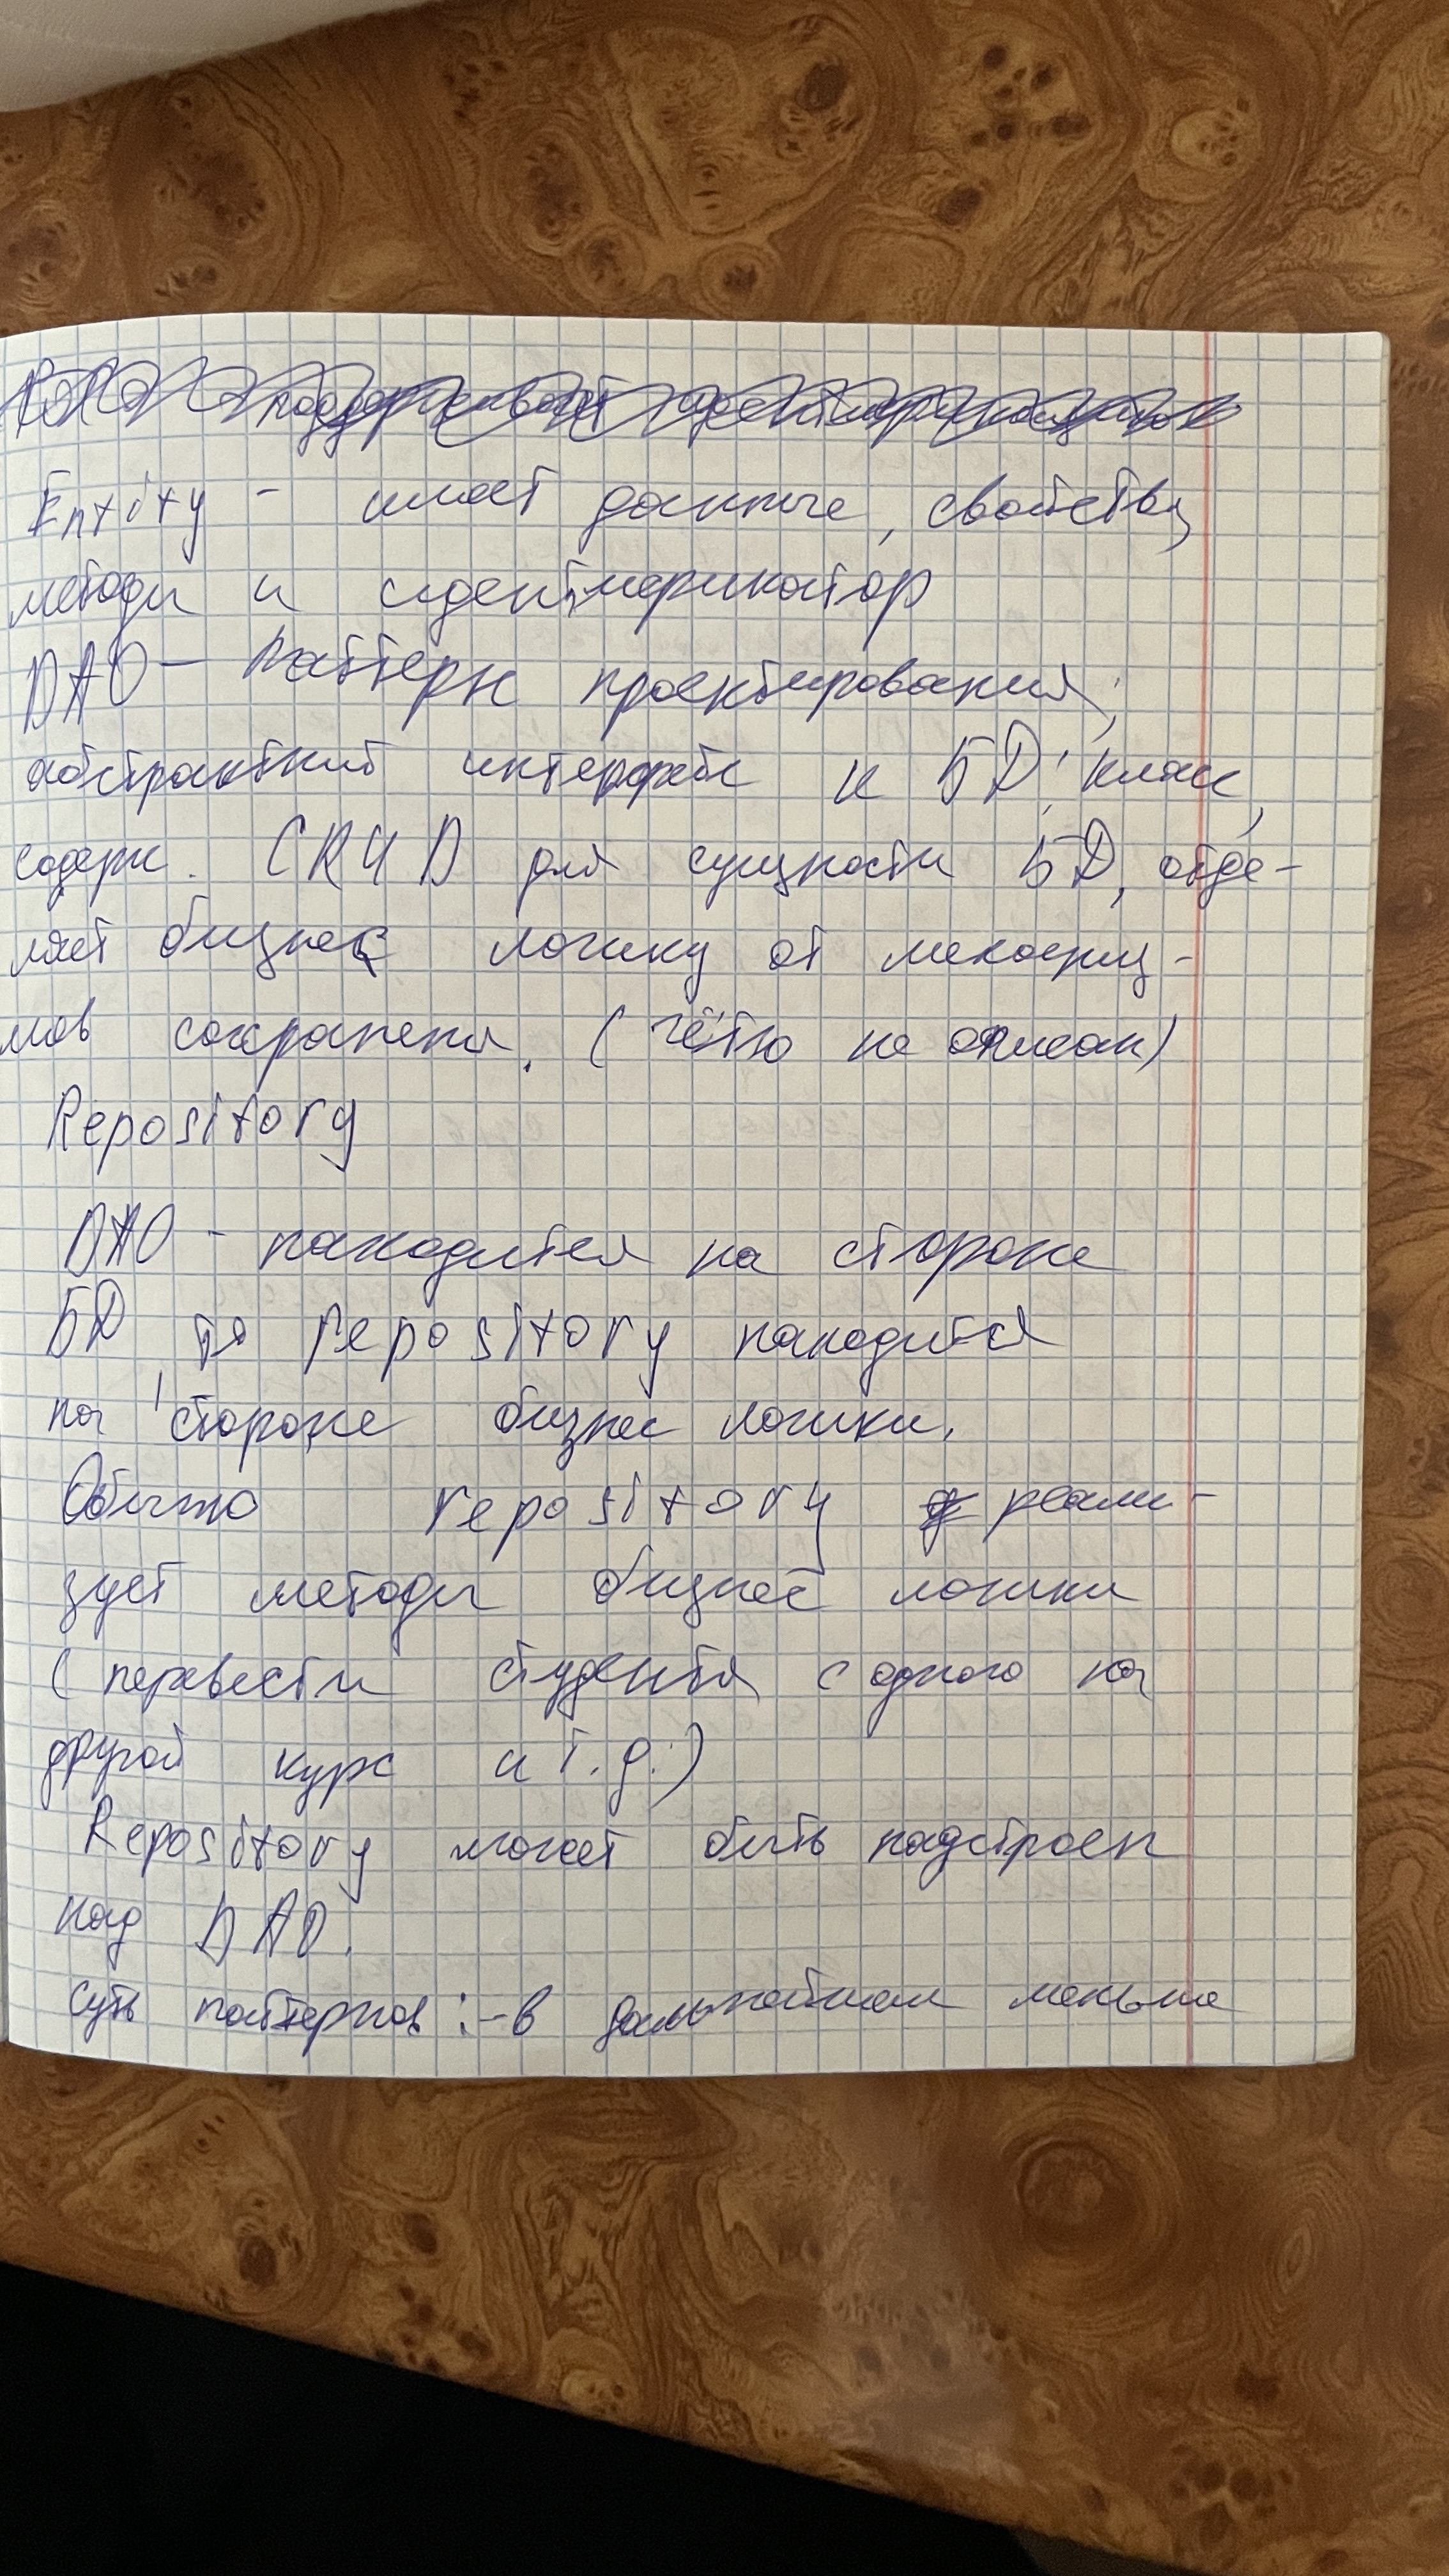 поддерживает
Entity - имеет данные, свойства,
методы и идентификатор
DAO — паттерн проектирования;
абстрактный интерфейс к БД; класс,
содерж. CRUD для сущности БД, отде-
ляет бизнес логику от механиз-
мов сохранения. (чётко не описан)
Repository
DAO - находится на стороне
БД, а repository находится
на стороне бизнес логики.
Обычно repository реали-
зует методы бизнес логики
(перевести студента с одного на
другой курс и т.д.)
Repository может быть надстроен
над DAO.
Суть паттернов: - в дальнейшем меньше